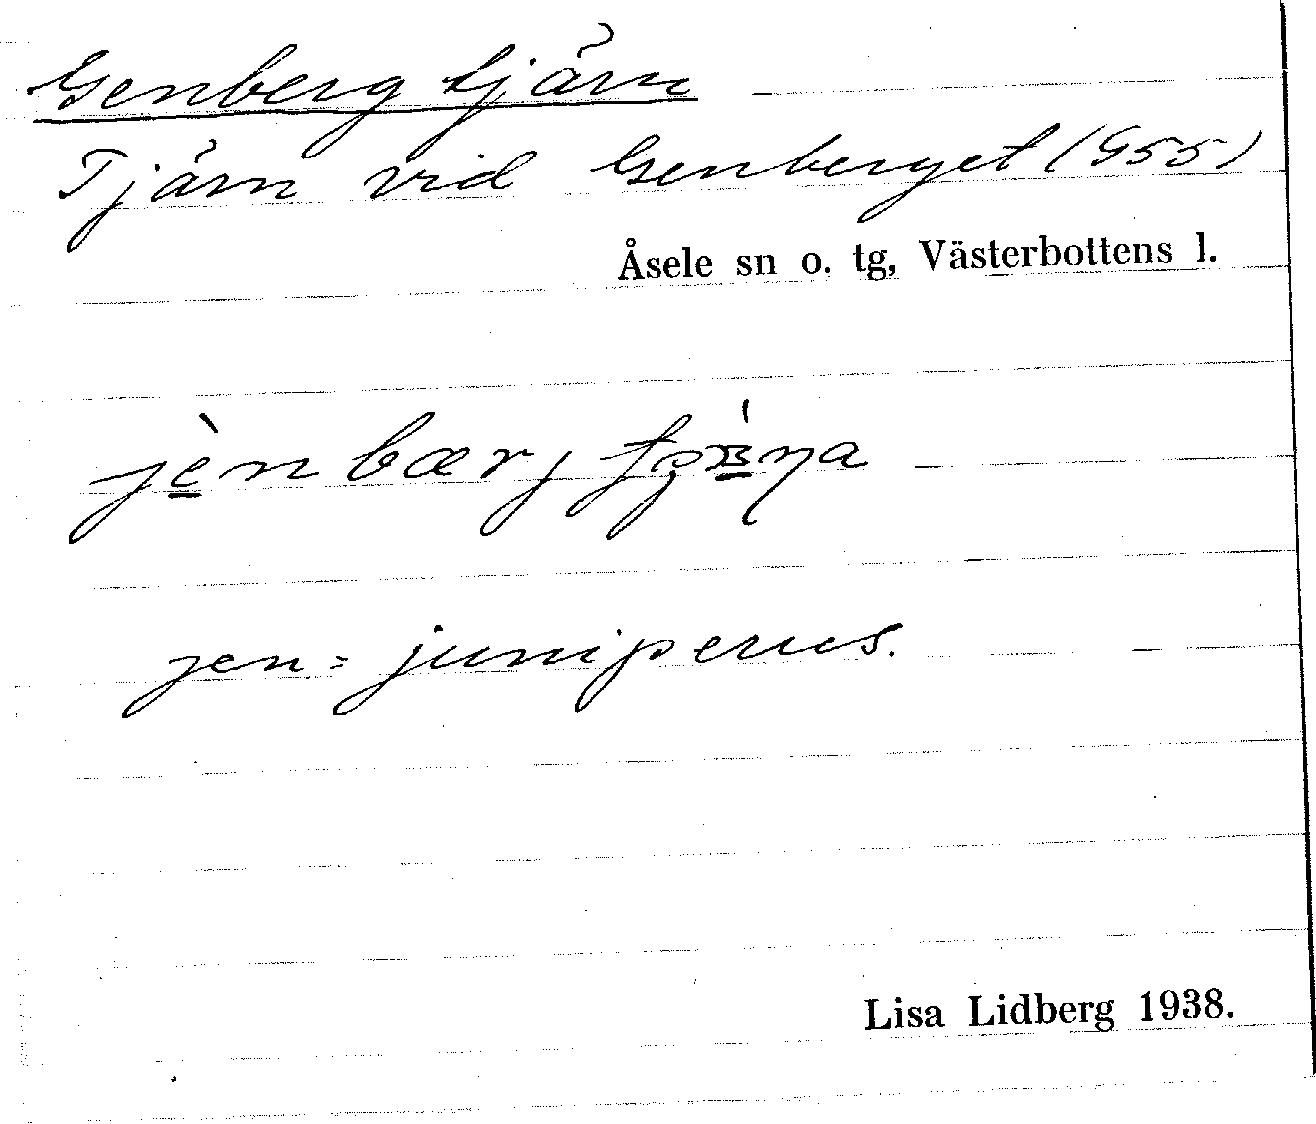 Genberg tjärn
Tjärn vid Genberget (G55)
Åsele sn o. tg, Västerbottens l.
jènbærj
jen = juniperus.
Lisa Lidberg 1938.